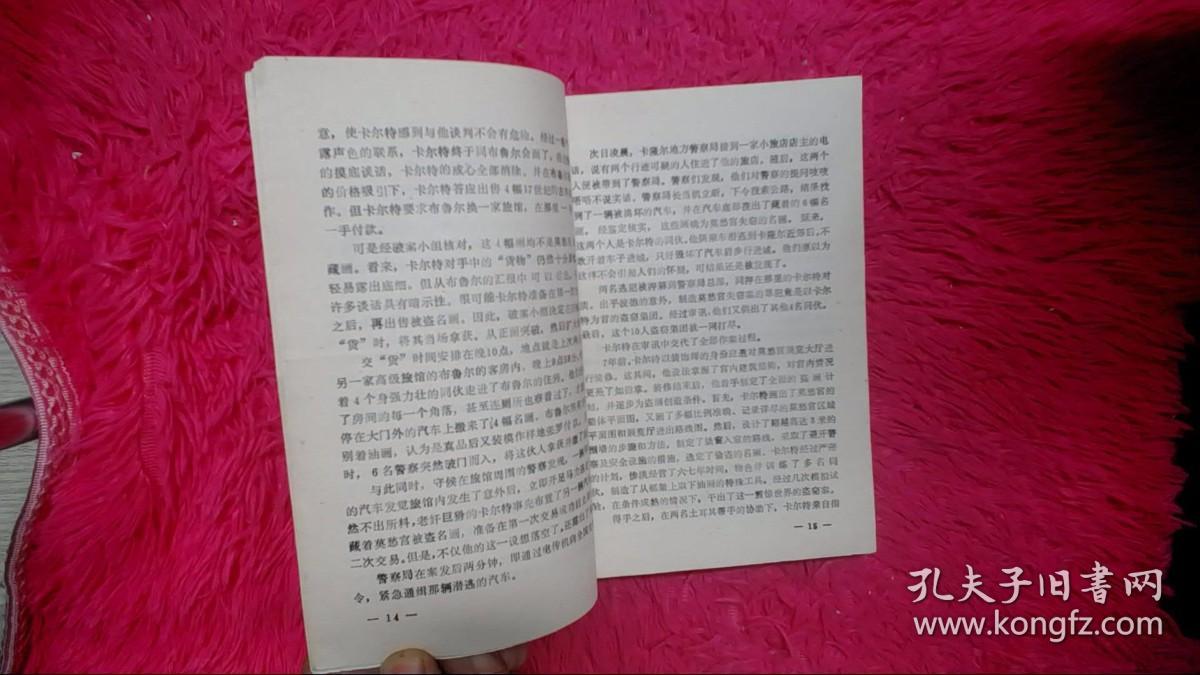 意，使卡尔特感到与他谈判不会有危险。经过一
露声色的联系，卡尔特终于同布鲁尔会面了，
的摸底谈话，卡尔特的戒心全部消除。并在布鲁
的价格吸引下，卡尔特答应出售4幅17世纪的
作。但卡尔特要求布鲁尔换一家旅馆，在那里一
一手付款。
可是经破案小组核对，这4幅画均不是莫愁宫
藏画。看来，卡尔特对手中的“货物”仍然十分
轻易露出底细。但从布鲁尔的汇报中可以看出，
许多谈话具有暗示性。很可能卡尔特准备在第一次
之后，再出售被盗名画。因此，破案小组决定在
“货”时，将其当场拿获。从正面突破，然后
交“货”时间安排在晚10点，地点就是上次
另一家高级旅馆的布鲁尔的客房内，晚上9点
着4个身强力壮的同伙走进了布鲁尔的住所。
了房间的每一个角落，甚至连厕所也察看过了，
停在大门外的汽车上搬来了4幅名画。布鲁尔
别着油画，认为是真品后又装模作样地张罗付款。
时，6名警察突然破门而入，将这伙人拿获
与此同时，守候在旅馆周围的警察发现，一辆
的汽车发觉旅馆内发生了意外后，立即开足马力
然不出所料，老奸巨猾的卡尔特事先布置了另一辆
藏着莫愁宫被盗名画，准备在第一次交易成功后
二次交易。但是，不仅他的这一设想落空了，还
警察局在案发后两分钟，即通过电传机向全国
令，紧急通缉那辆潜逃的汽车。
— 14 —
次日凌晨，卡隆尔地方警察局接到一家小旅店店主的电
话，说有两个行迹可疑的人住进了他的旅店。随后，这两个
人便被带到了警察局。警察们发现，他们对警察的提问吱吱
唔唔不说实话。警察局长当机立断，下令搜索公路，结果找
到了一辆被毁坏的汽车，并在汽车底部搜出了藏着的6幅名
画。经鉴定核实，这些画确为莫愁宫失窃的名画。原来，
这两个人是卡尔特的同伙。他俩乘车潜逃到卡隆尔近郊后，不
敢开着车子进城，只好毁坏了汽车前步行进城。他们原以为
这样不会引起人们的怀疑，可结果还是被发现了。
两名逃犯被押解到警察局总部，同押在那里的卡尔特对
质。出乎波德的意外，制造莫愁宫失窃案的罪犯竟是以卡尔
特为首的盗窃集团。经过审讯，他们又供出了其他4名同伙。
最后，这个10人盗窃集团被一网打尽。
卡尔特在审讯中交代了全部作案过程。
7年前，卡尔特以装饰师的身份应邀对莫愁宫展览大厅进
行装修。这其间，他设法掌握了宫内建筑结构，对宫内情况
更是了如指掌。装修结束后，他着手制定了全面的盗画计
划，并逐步为盗画创造条件。首先，卡尔特画出了莫愁宫的
整体平面图，又画了多幅比例准确、记录详尽的莫愁宫区域
平面图和展览厅进出路线图。然后，设计了翻越高达8米的
围墙的步骤和方法，制定了破窗入室的路线，采取了避开警
察及安全设施的措施，选定了偷盗的名画。卡尔特经过严密
的计划，惨淡经营了六七年时间，物色并训练了多名同
伙，制造了从框架上取下油画的特殊工具。经过几次模拟试
验，在条件成熟的情况下，干出了这一震惊世界的盗窃案。
得手之后，在两名土耳其帮手的协助下，卡尔特亲自指
— 15 —
孔夫子旧书网
www.kongfz.com